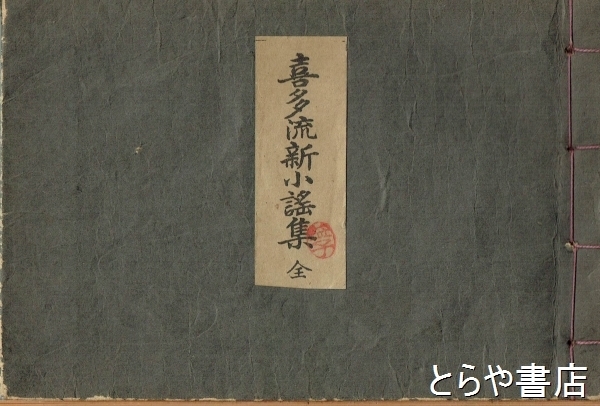 喜多流新小謡集
全
とらや書店